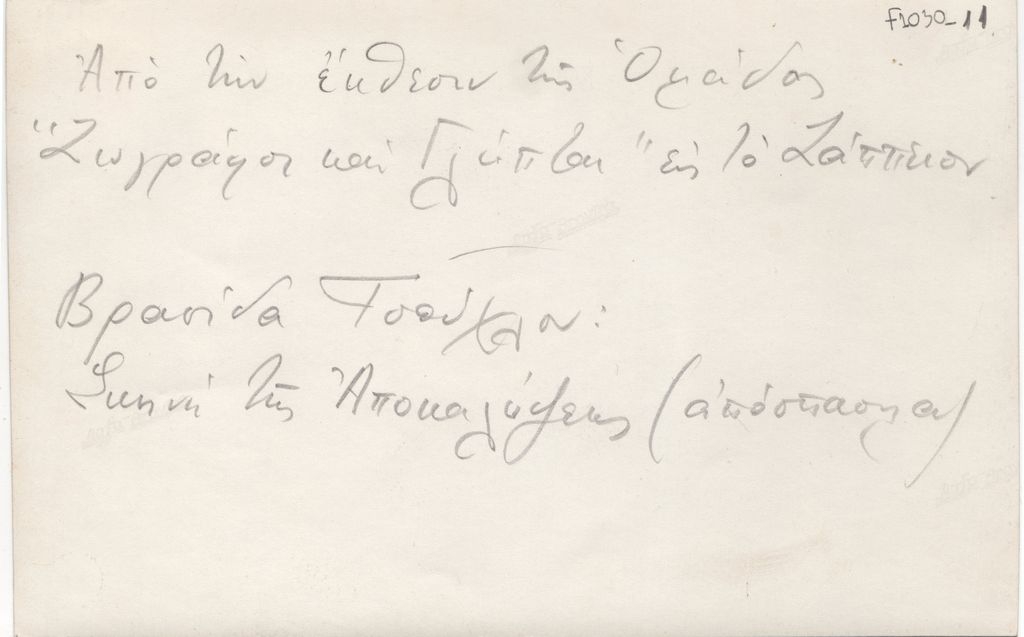 F1030-11
Ἀπὸ τὴν ἔκθεσιν τῆς Ὁμάδος
"Ζωγράφοι καὶ Γλύπται" εἰς τὸ Ζάππειον
Βρασίδα Τσούχλου:
Σκηνὴ τῆς Ἀποκαλύψεως (ἀπόσπασμα)